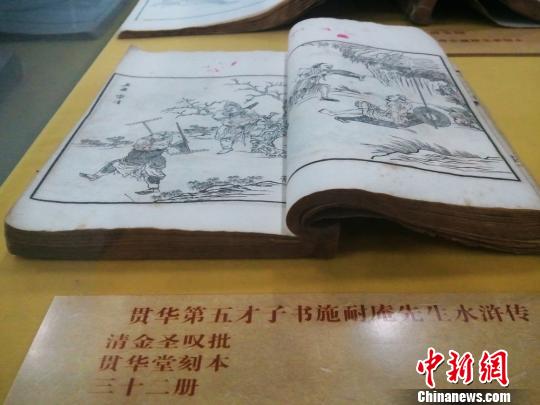 贯华第五才子书施耐庵先生水浒传
清金圣叹批
贯华堂刻本
三十二册
中新网
Chinanews.com